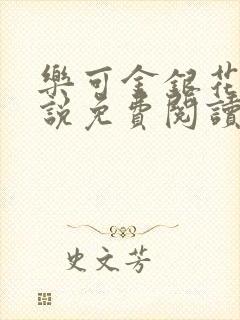 樂可金銀花
說免費閱讀
史文芳